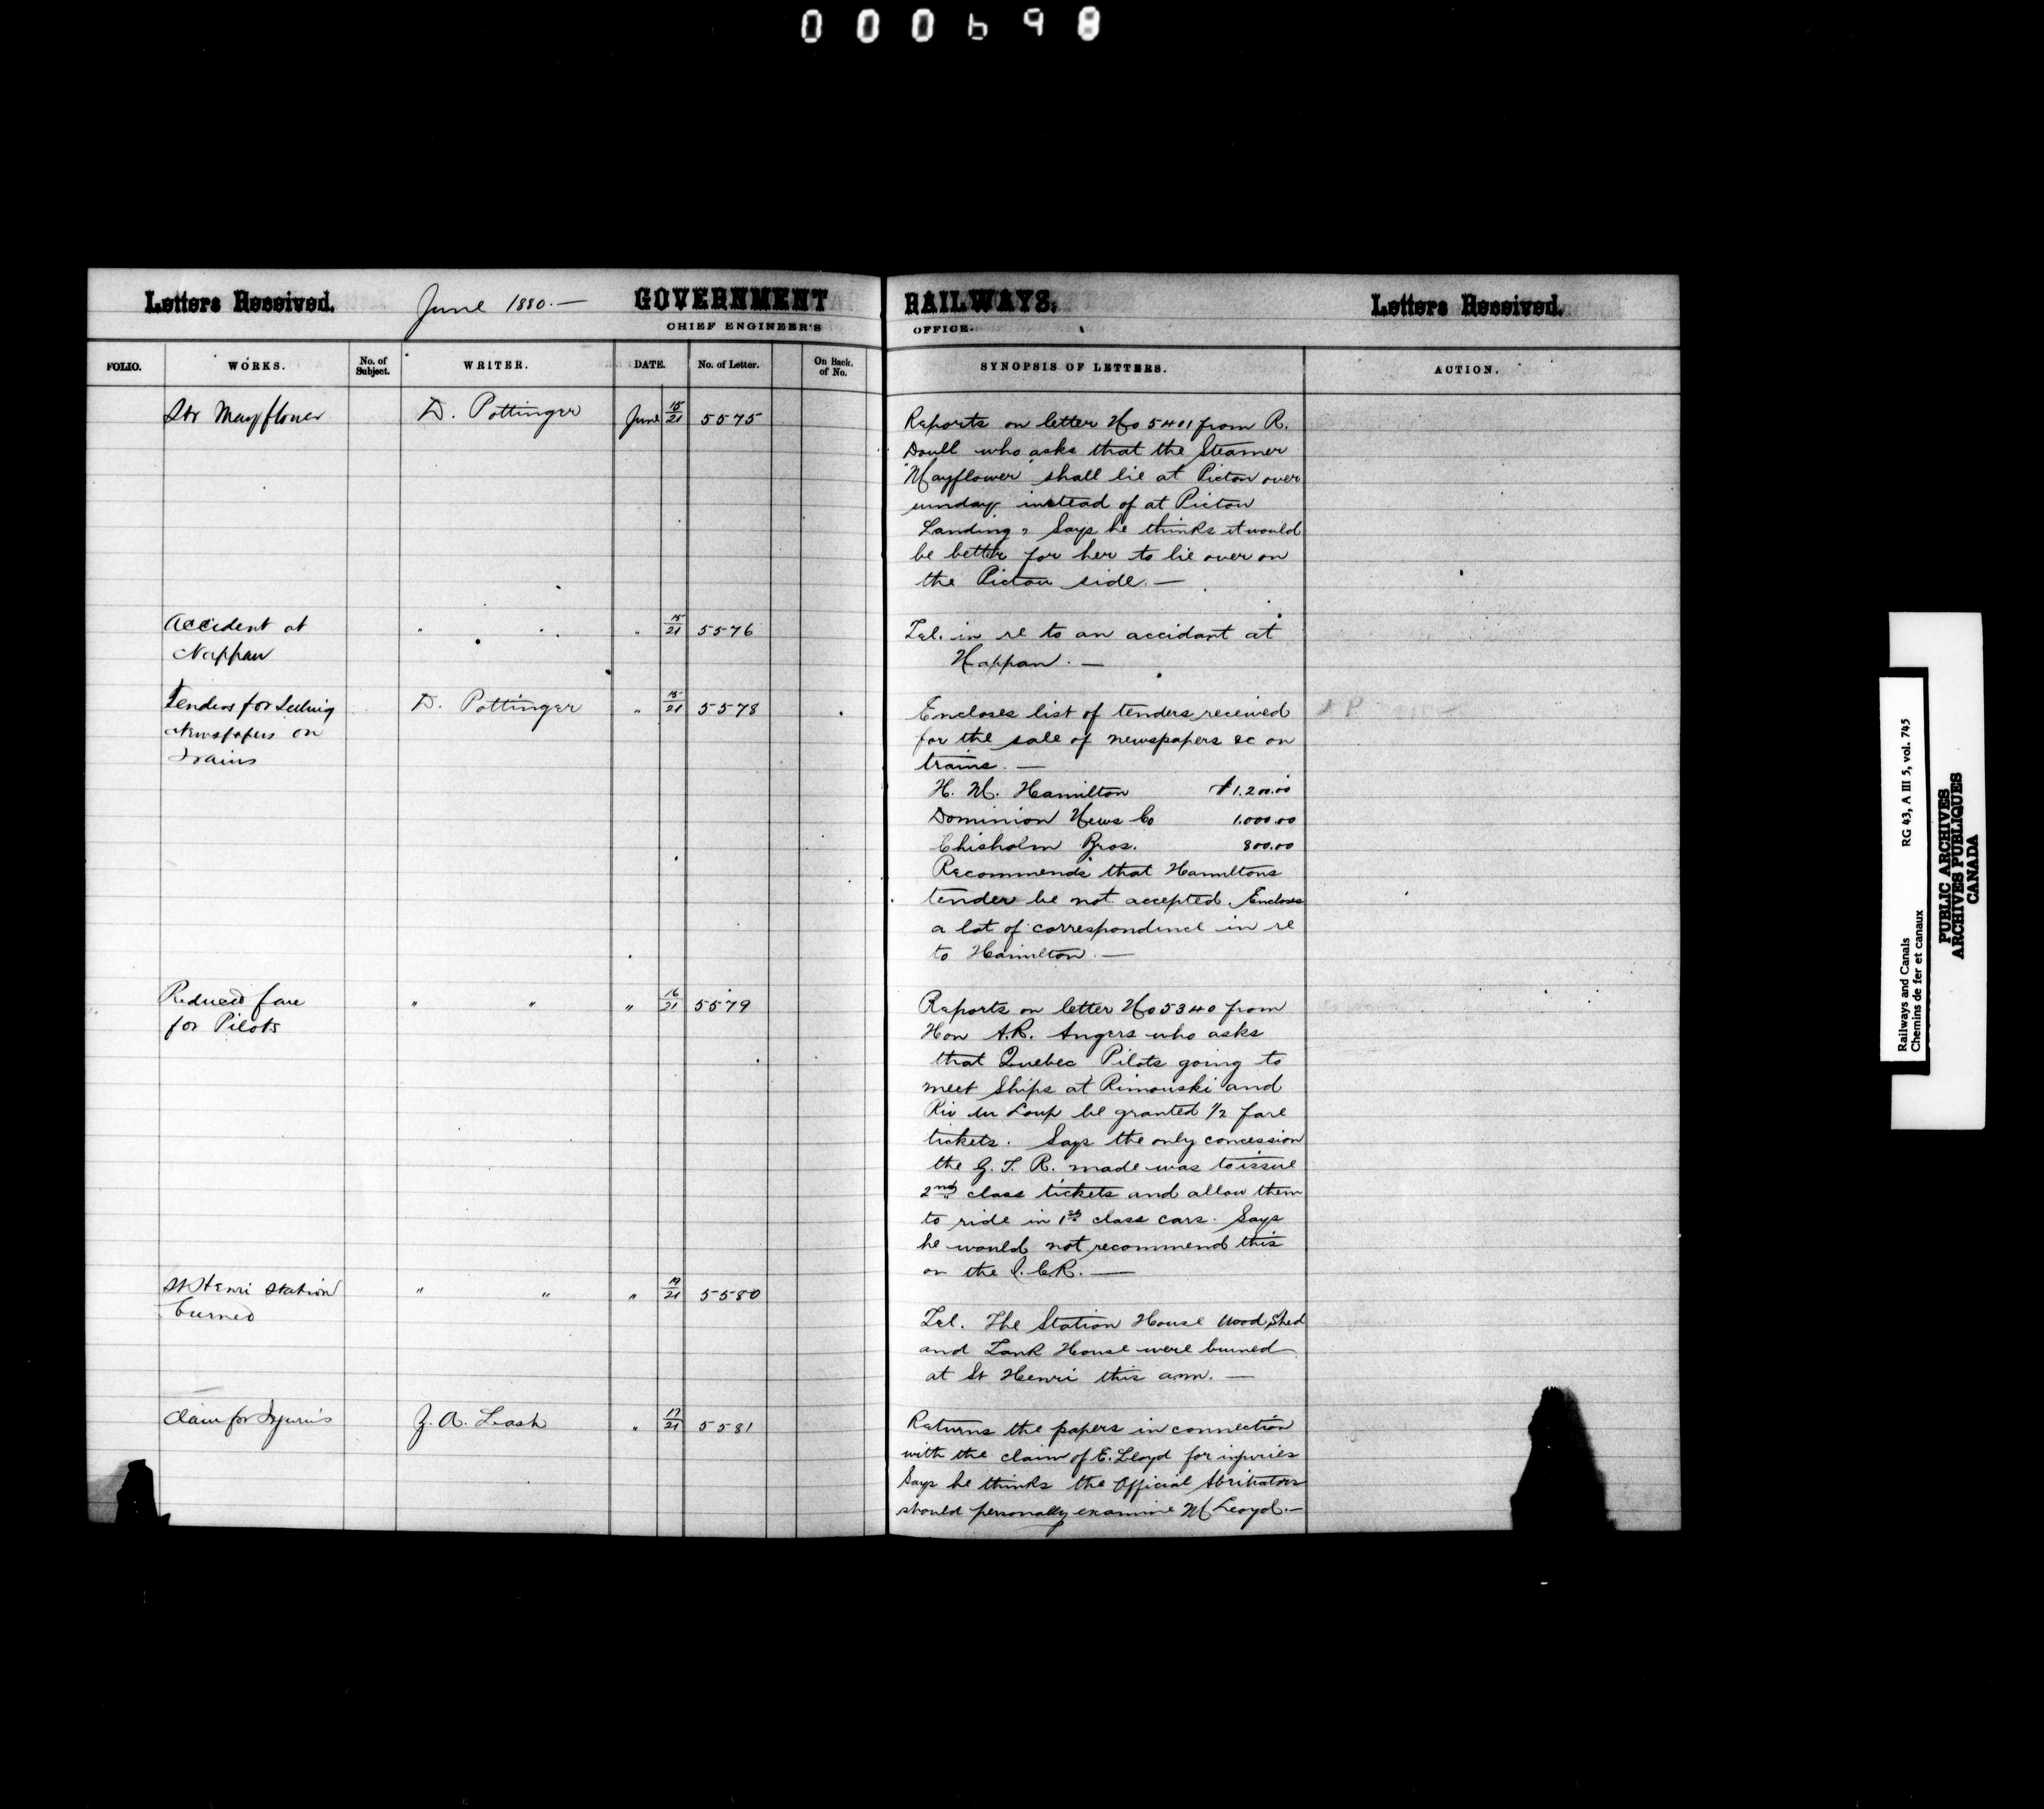 000698
Letters Received. June 1880.— GOVERNMENT RAILWAYS. Letters Received.
CHIEF ENGINEER'S OFFICE.
FOLIO. WORKS. No. of Subject. WRITER. DATE. No. of Letter. On Back. of No. SYNOPSIS OF LETTERS. ACTION.
Str Mayflower D. Pottinger June 15/21 5575
Reports on letter No 5401 from R.
Doull who asks that the Steamer
"Mayflower" shall lie at Pictou over
sunday instead of at Pictou
Landing, Says he thinks it would
be better for her to lie over on
the Pictou side.—
Accident at " " " 15/21 5576
Nappan
Tel. in re to an accidant at
Nappan.—
Tenders for Selling D. Pottinger " 15/21 5578
Newspapers on
Trains
Encloses list of tenders received
for the sale of newspapers &c on
trains.—
H. M. Hamilton $1,200.00
Dominion News Co 1.000.00
Chisholm Bros. 800.00
Recommends that Hamiltons
tender be not accepted. Encloses
a lot of correspondence in re
to Hamilton.—
Reduced fare " " " 16/21 5579
for Pilots
Reports on letter No 5340 from
Hon A.R. Angers who asks
that Quebec Pilots going to
meet Ships at Rimouski and
Riv du Loup be granted 1/2 fare
tickets. Says the only concession
the G. T. R. made was to issue
2nd class tickets and allow them
to ride in 1st class cars. Says
he would not recommend this
on the I.C.R.—
St Henri Station " " " 19/21 5580
burned
Tel. The Station House Wood Shed
and Tank House were burned
at St Henri this a.m.—
Claim for Injuries Z. A. Lash " 17/21 5581
Returns the papers in connection
with the claim of E. Lloyd for injuries
Says he thinks the Official Abritrators
should personally examine M Lloyd.—
Railways and Canals RG 43, A III 5, vol. 745
Chemins de fer et canaux
PUBLIC ARCHIVES
ARCHIVES PUBLIQUES
CANADA